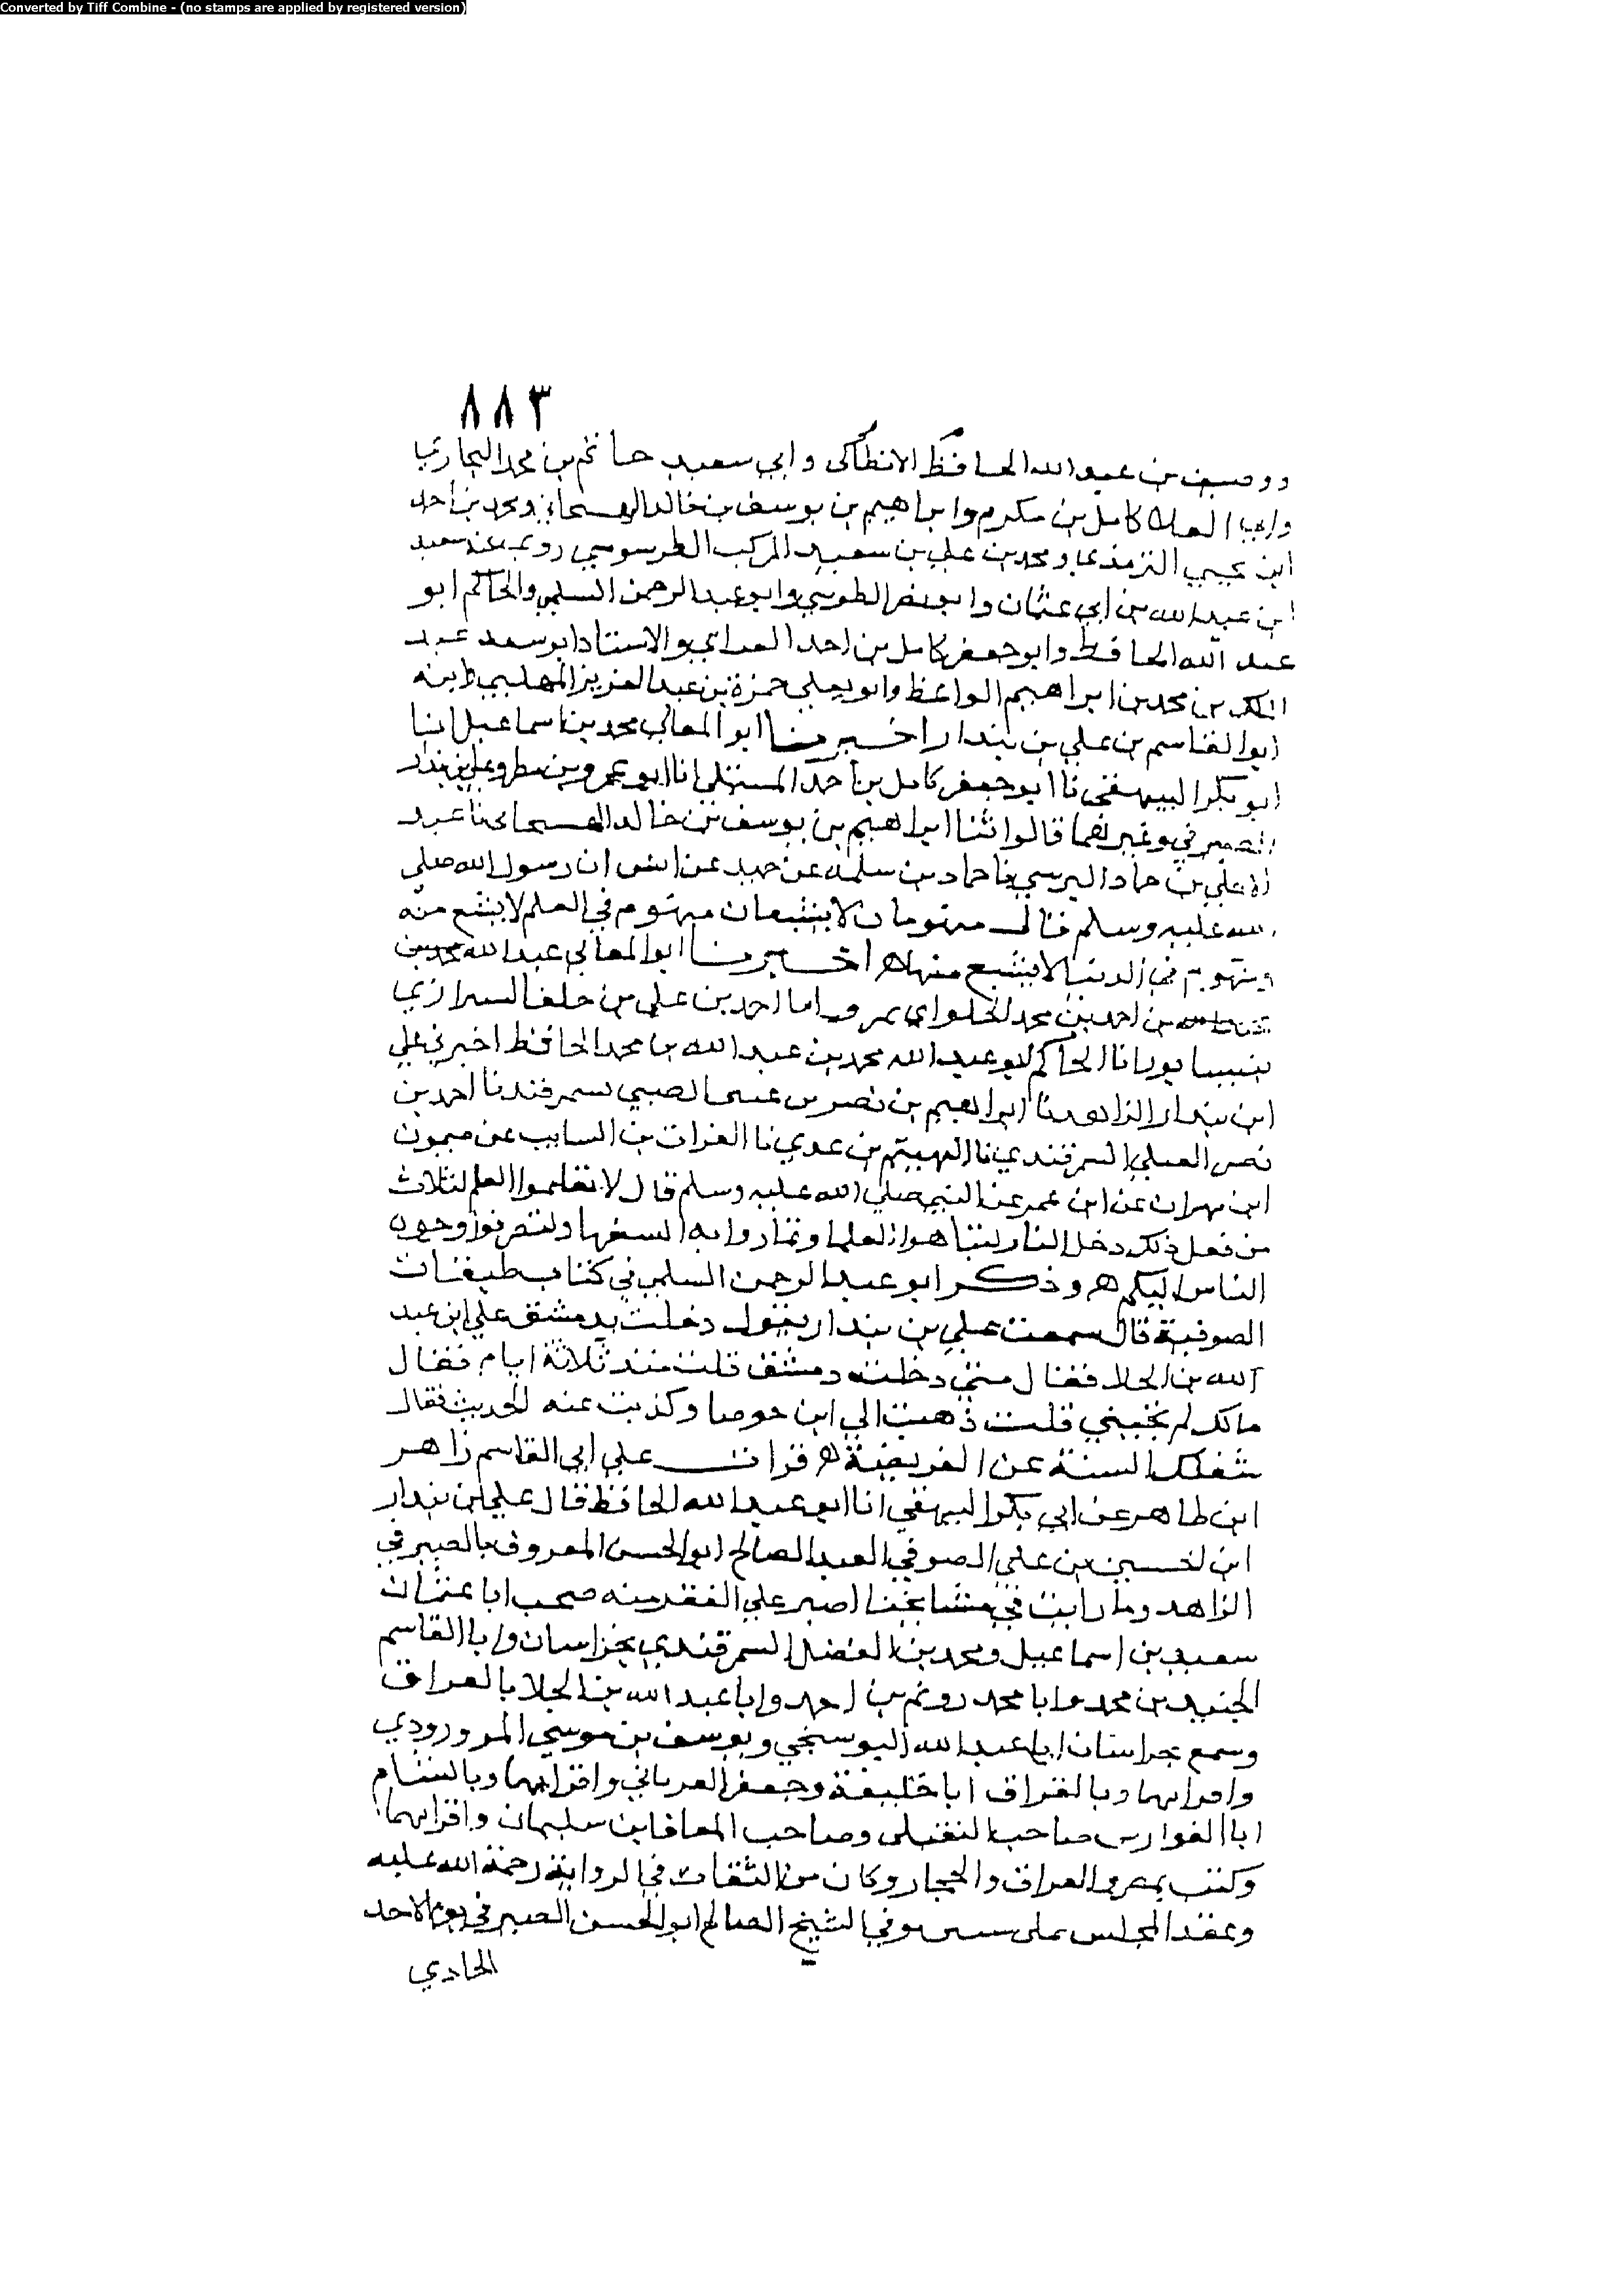 Converted by Tiff Combine - (no stamps are applied by registered version)
٨٨٣
ووصيف بن عبد الله الحافظ الانطاكي وابي سعيد حاتم بن محمد البخاري
وابي العلا كامل بن مكرم وابراهيم بن يوسف بن خالد الهسنجاني ومحمد بن احمد
ابن يحيي الترمذي ومحمد بن علي بن سعيد المركب الطرسوسي روى عنه سعيد
ابن عبد الله بن ابي عثمان وابو نصر الطوسي وابو عبد الرحمن السلمي والحاكم ابو
عبد الله الحافظ وابو جعفر كامل بن احمد العزائمي والاستاذ ابو سعد عبد
الملك بن محمد بن ابراهيم الواعظ وابو يعلي حمزة بن عبد العزيز المهلبي وابنه
ابو القاسم بن علي بن بندار اخبرنا ابو المعالي محمد بن اسماعيل انبا
ابو بكر البيهقي نا ابو جعفر كامل بن احمد المستملي انا ابو عمرو بن مطر وعلي بن بندار
الصيرفي وغيرهما قالوا ثنا ابراهيم بن يوسف بن خالد الهسنجاني نا عبد
الاعلي بن حماد النرسي نا حماد بن سلمة عن حميد عن انس ان رسول الله صلي
الله عليه وسلم قال منهومان لا يشبعان منهوم في العلم لا يشبع منه
ومنهوم في الدنيا لا يشبع منها ه اخبرنا ابو المعالي عبد الله محمد بن
بن احمد بن محمد الحلواي بمرو انا احمد بن علي بن خلف الشيرازي
بنيسابور انا الحاكم ابو عبد الله محمد بن عبد الله بن محمد الحافظ اخبرني علي
ابن بندار الزاهد نا ابراهيم بن نصر بن الضبي بسمرقند نا احمد بن
نصر السمرقندي نا الهيثم بن عدي نا الفرات بن السايب عن ميمون
ابن مهران عن ابن عمر عن النبي صلي الله عليه وسلم قال لا تعلموا العلم لثلاث
من فعل ذلك دخل النار لتباهوا العلما وتماروا به السفها ولتصرفوا وجوه
الناس اليكم ه وذكر ابو عبد الرحمن السلمي في كتاب طبقات
الصوفية قال سمعت علي بن بندار يقول دخلت بدمشق علي ابن عبد
الله بن الجلا فقال متي دخلت دمشق قلت منذ ثلاثة ايام فقال
مالك لم تجيني قلت ذهبت الي ابن جوصا وكتبت عنه الحديث فقال
شغلك السنة عن الفريضة ه قرات علي ابي القاسم زاهر
ابن طاهر عن ابي بكر البيهقي انا ابو عبد الله الحافظ قال علي بن بندار
ابن الحسين بن علي الصوفي العبد الصالح ابو الحسن المعروف بالصيرفي
الزاهد وما رايت في مشايخنا اصبر علي الفقر منه صحب ابا عثمان
سعيد بن اسماعيل ومحمد بن الفضل السمرقندي بخراسان وابا القاسم
الجنيد بن محمد وابا محمد رويم بن احمد وابا عبد الله بن الجلا بالعراق
وسمع بخراسان ابا عبد الله البوسنجي ويوسف بن موسي المروروذي
واقرانهما وبالعراق ابا خليفة وجعفر الفريابي واقرانهما وبالشام
ابا الفوارس صاحب النفيلي وصاحب المعافا بن سليمان واقرانهما
وكتب بمصر والعراق والحجاز وكان من الثقات في الرواية رحمة الله عليه
وعقد المجلس توفي الشيخ الصالح ابو الحسن الصيرفي يوم الاحد
الحادي